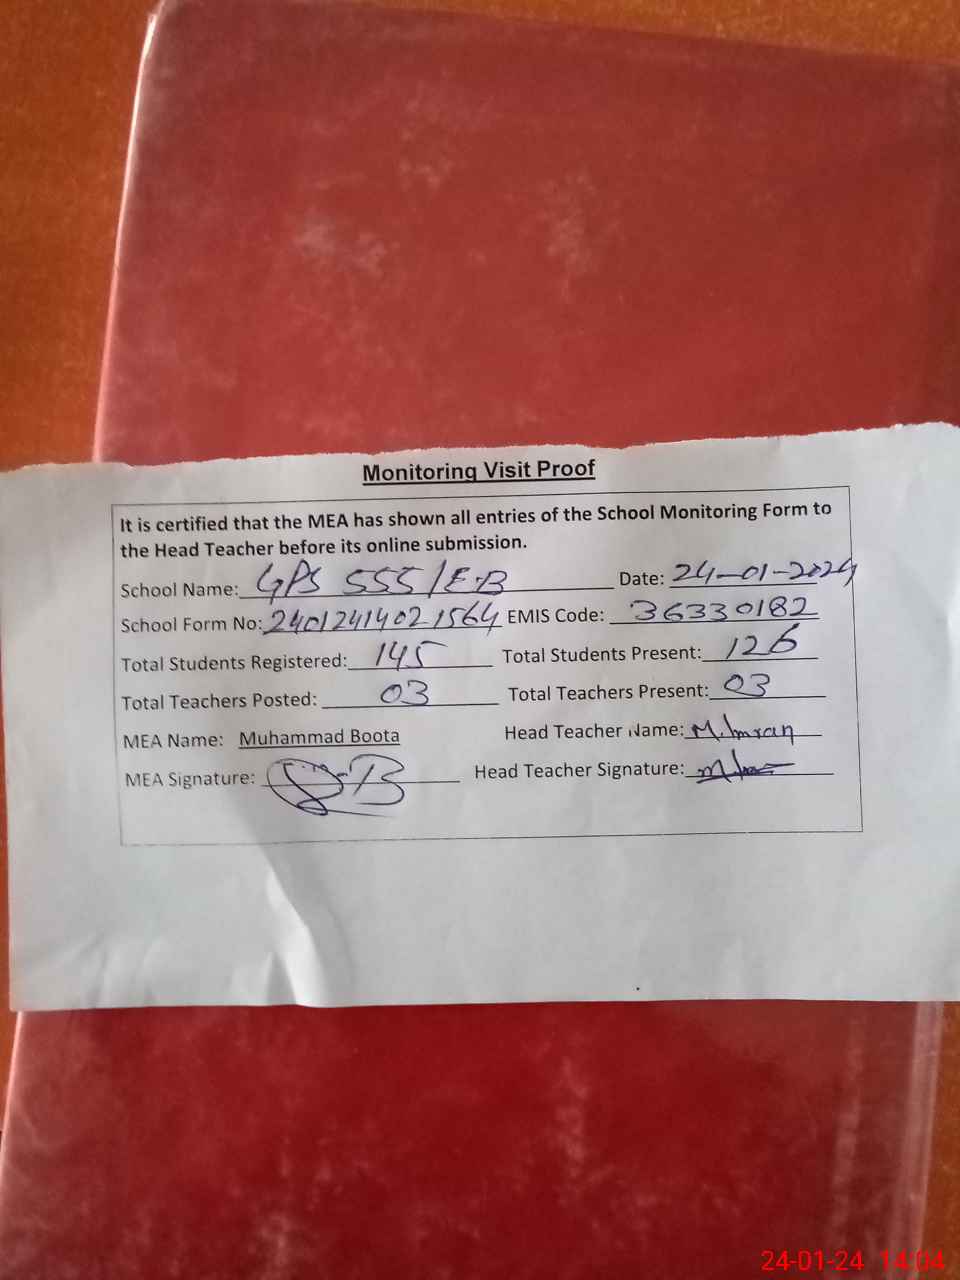 Monitoring Visit Proof
It is certified that the MEA has shown all entries of the School Monitoring Form to
the Head Teacher before its online submission.
School Name: GPS 555/E.B Date: 24-01-2024
School Form No: 24012414021564 EMIS Code: 36330182
Total Students Registered: 145 Total Students Present: 126
Total Teachers Posted: 03 Total Teachers Present: 03
MEA Name: Muhammad Boota Head Teacher Name: M.Imran
MEA Signature: Head Teacher Signature:
24-01-24 14:04